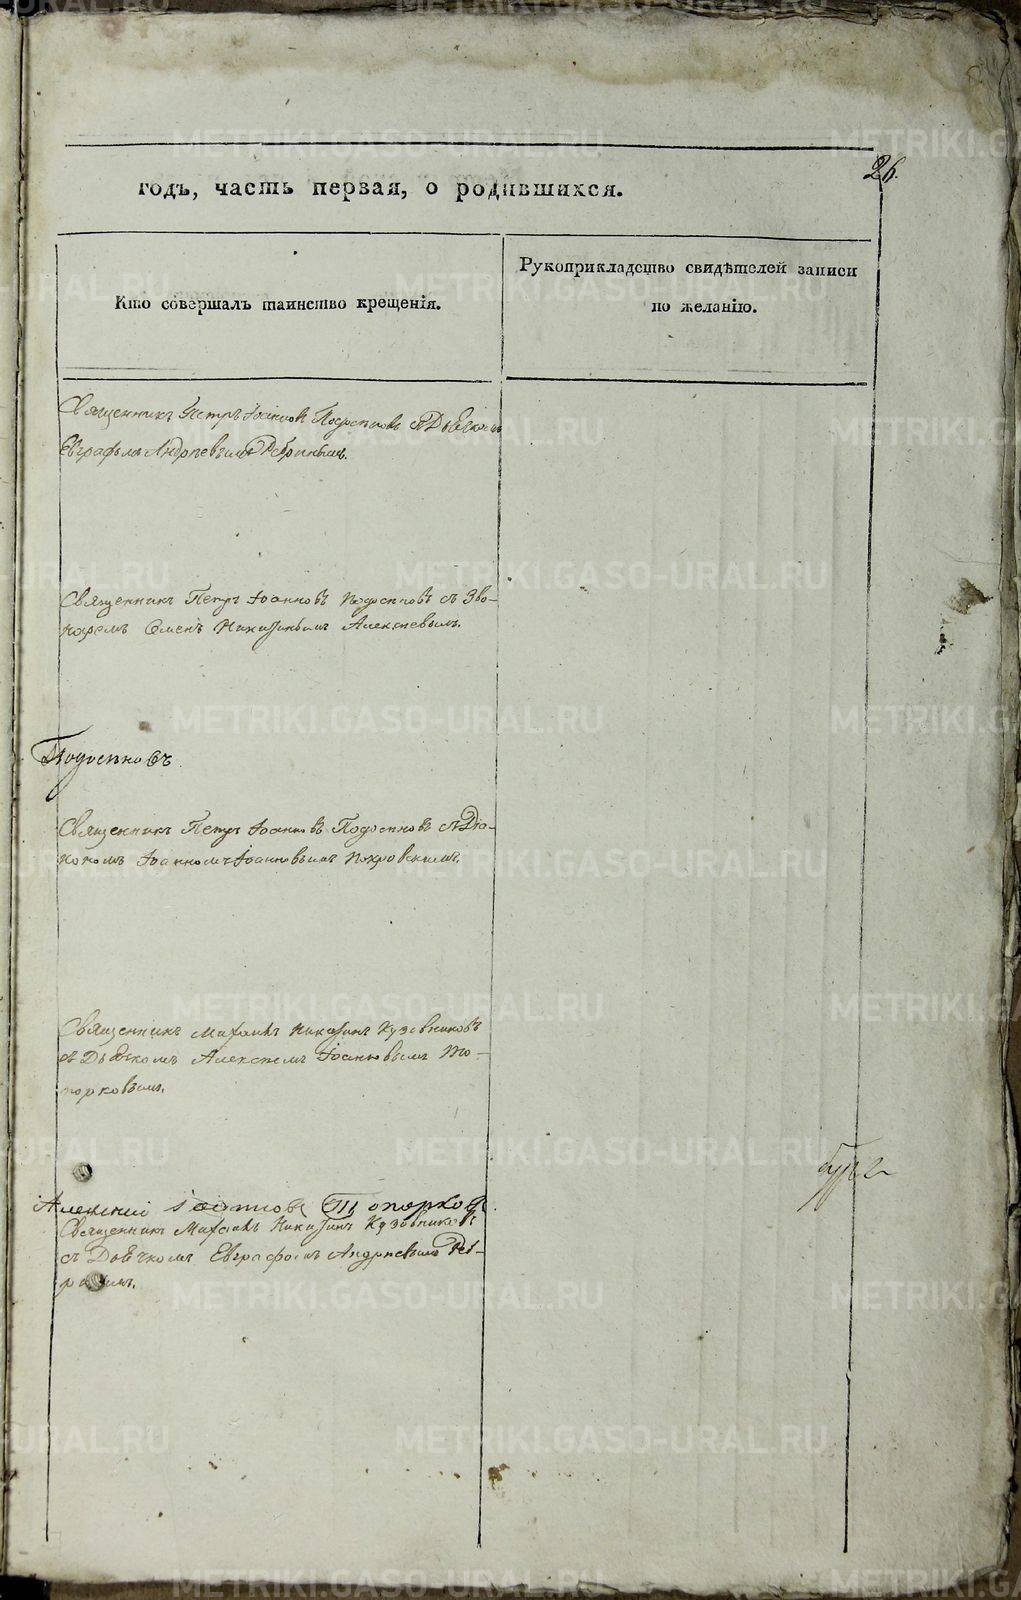 26.
годъ, часть первая, о родившихся.
Кто совершалъ таинство крещенія.
Рукоприкладство свидѣтелей записи
по желанію.
Священникъ Петръ Іоанновъ Подосеновъ съ Дьячкомъ
Евграфомъ Андреевымъ Ребринымъ.
Священникъ Петръ Іоанновъ Подосеновъ съ Зво-
наремъ Семенъ Никитинымъ Алексѣевымъ.
Подосеновъ
Священникъ Петръ Іоанновъ Подосеновъ съ Діа-
кономъ Іоанномъ Іоанновымъ Покровскимъ.
Священникъ Михаилъ Никитинъ Кузовниковъ
съ Дьячкомъ Алексѣемъ Іоанновымъ То-
порковымъ.
Алексий Топорков
Священникъ Михаилъ Никитинъ Кузовниковъ
съ Дьячкомъ Евграфомъ Андреевымъ Реб-
ринымъ.
METRIKI.GASO-URAL.RU